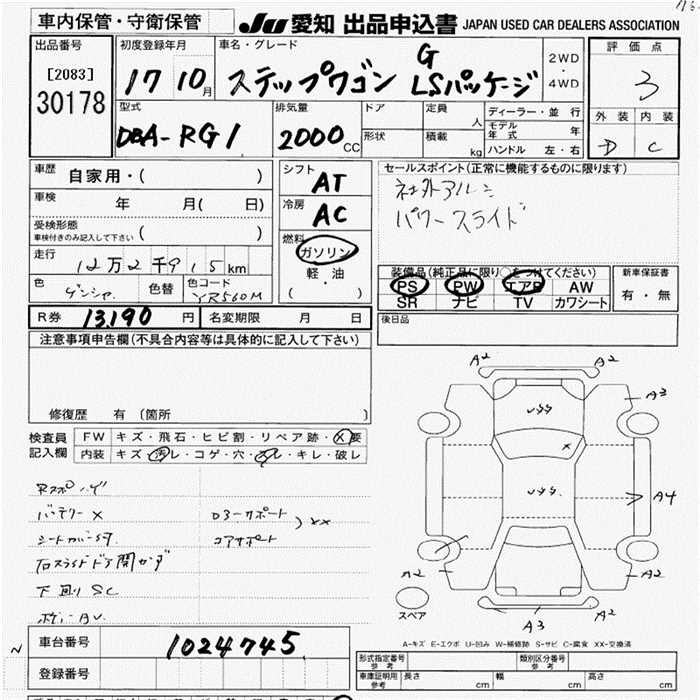 車内保管・守衛保管
JU 愛知 出品申込書 JAPAN USED CAR DEALERS ASSOCIATION
出品番号
[2083]
30178
初度登録年月
17 10月
車名・グレード
ステップワゴン G LSパッケージ
2WD
・
4WD
評価点
3
外装 内装
D C
型式
DBA-RG1
排気量
2000 CC
ドア
形状
定員 人
積載 kg
ディーラー・並行
モデル年式 年
ハンドル 左・右
車歴
自家用・( )
車検
年 月( 日)
受検形態
車検付きのみ記入して下さい ( )
走行
12万2千915km
色
色替
色コード
YR560M
シフト
AT
冷房
AC
燃料
ガソリン
・
軽・油
( )
セールスポイント(正常に機能するものに限ります)
社外アルミ
パワースライド
装備品(純正品に限り○をつけてください)
PS PW エアB AW
SR ナビ TV カワシート
新車保証書
有・無
R券 13,190 円
名変期限 月 日
後日品
注意事項申告欄(不具合内容等は具体的に記入して下さい)
修復歴 有(箇所 )
検査員
記入欄
FW キズ・飛石・ヒビ割・リペア跡・X要
内装 キズ・汚レ・コゲ・穴・スレ・キレ・破レ
バッテリーX
コアサポート
XX
下回りSC
A2 A2
A3
A4
A2 A2
A3 A2
スペア
A-キズ E-エクボ U-凹み W-補修跡 S-サビ C-腐食 XX-交換済
車台番号
1024745
登録番号
形式指定番号
参考
類別区分番号
参考
車庫証明用
参考
長さ cm
幅 cm
高さ cm